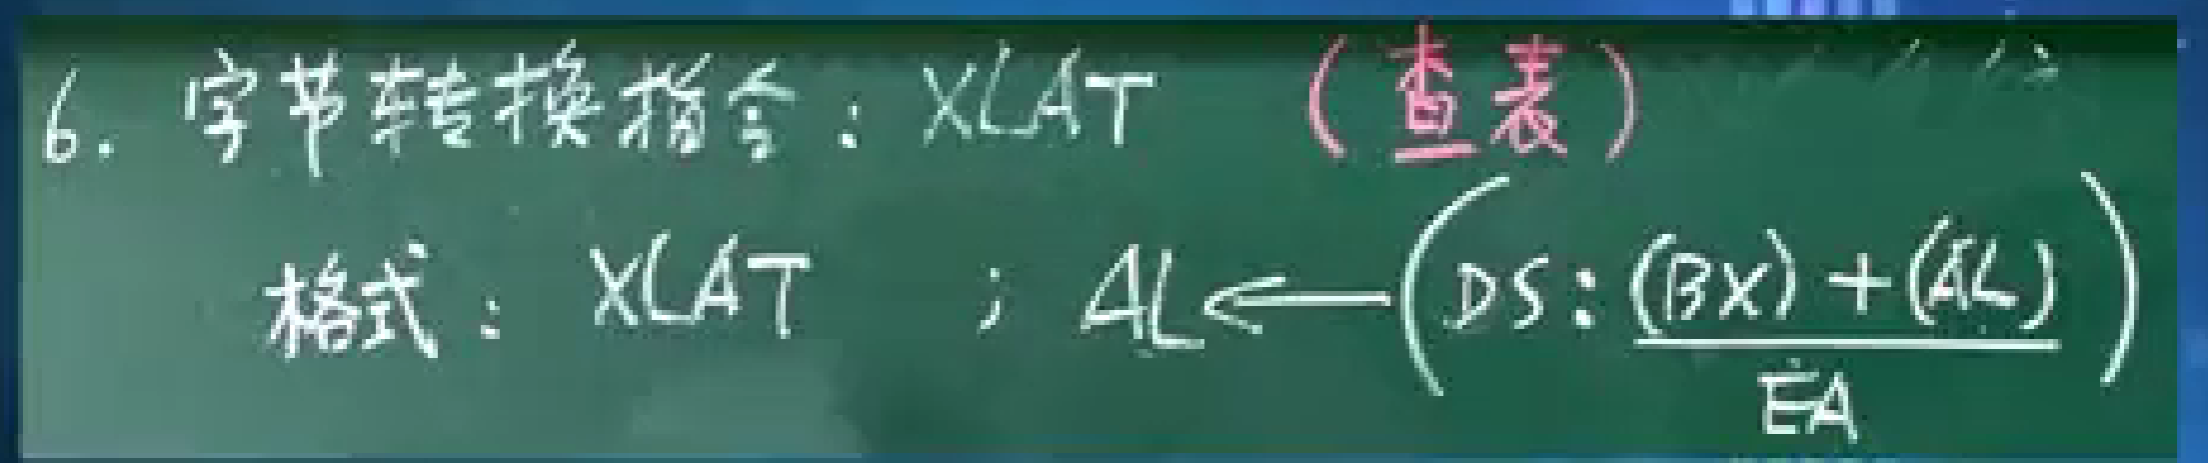 6. 字节转换指令: XLAT (查表)
格式: XLAT ; AL←(DS:(BX)+(AL))
EA